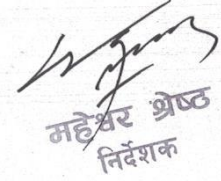 महेश्वर श्रेष्ठ
निर्देशक